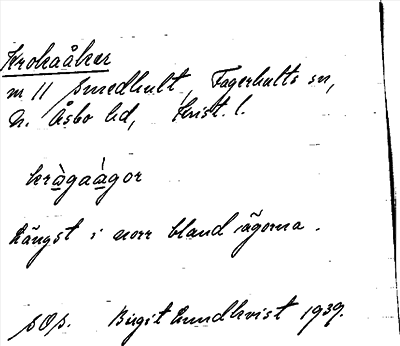 Krokaåker
nr 11 Smedhult, Fagerhults sn,
N. Åsbo hd, Krist. l.
kràgaàgor
Längst i norr bland ägorna.
sOs. Birgit Lundkvist 1939.